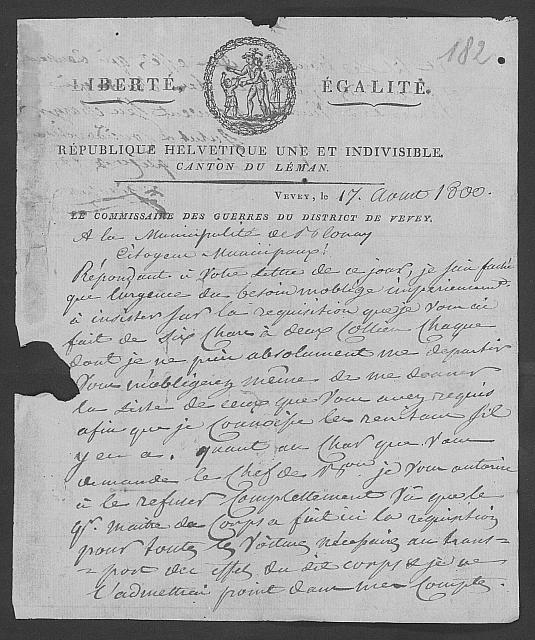 182
LIBERTÉ, ÉGALITÉ.
RÉPUBLIQUE HELVETIQUE UNE ET INDIVISIBLE.
CANTON DU LÉMAN.
VEVEY, le 17. Aout 1800.
LE COMMISSAIRE DES GUERRES DU DISTRICT DE VEVEY.
A la Municipalité de Blonay
Citoyens Municipaux!
Répondant à Votre Lettre de ce jour, je suis faché
que l'urgence du besoin m'oblige impérieusemt.
à insister sur la requisition que je vous ai
fait de Six Chars à deux Colliers Chaque
dont je ne puis absolument me departir
Vous m'obligerez même de me donner
la Liste de ceux que Vous avez requis
afin que je Connoisse les renitans s'il
y en a. quant au Char que Vous
demande le Chef de je Vous autorise
à le refuser Complettement Vû que le
Qr. maitre du Corps a fait ici la requisition
pour toutes les Voitures nécessaires au trans=
=port des effets du dit corps & je ne
l'admettrai point dans mes Comptes.